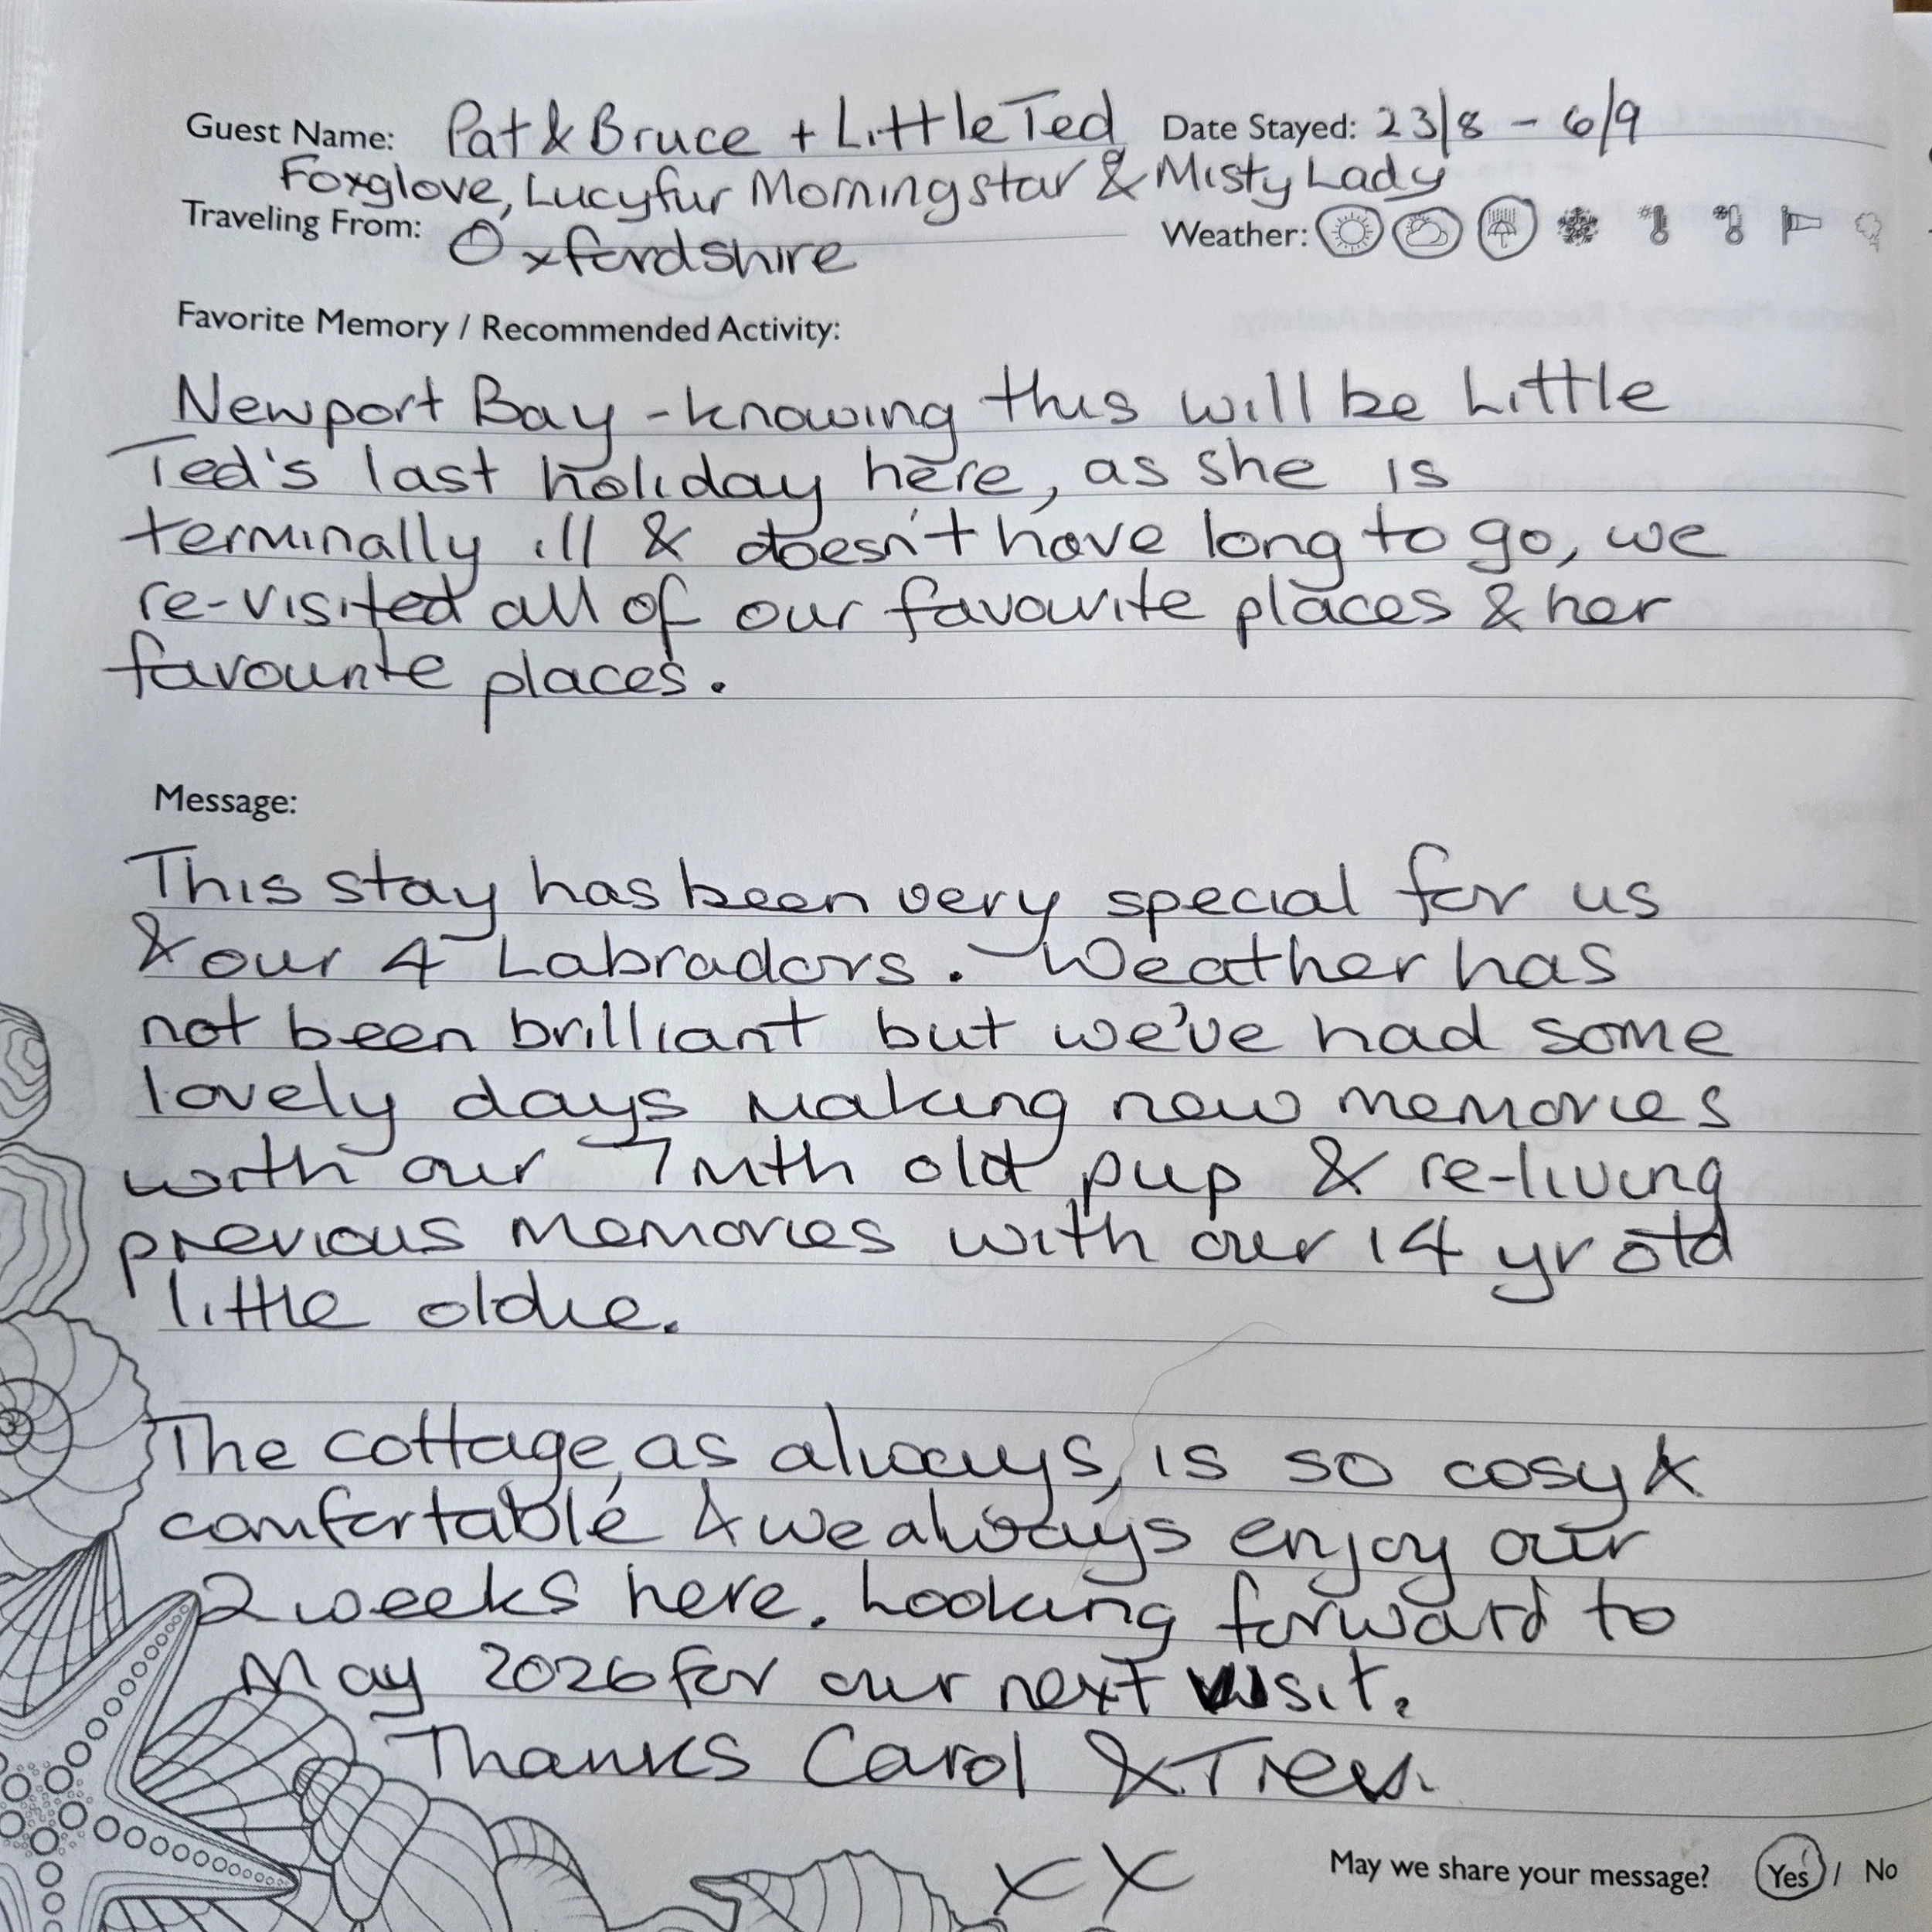 Guest Name: Pat & Bruce + Little Ted Date Stayed: 23/8 - 6/9
Foxglove, Lucyfur Morningstar & Misty Lady
Traveling From: Oxfordshire Weather:
Favorite Memory / Recommended Activity:
Newport Bay - knowing this will be Little
Ted's last holiday here, as she is
terminally ill & doesn't have long to go, we
re-visited all of our favourite places & her
favourite places.
Message:
This stay has been very special for us
& our 4 Labradors. Weather has
not been brilliant but we've had some
lovely days making new memories
with our 7 mth old pup & re-living
previous memories with our 14 yr old
little oldie.
The cottage, as always, is so cosy &
comfortable & we always enjoy our
2 weeks here. Looking forward to
May 2026 for our next visit.
Thanks Carol &
xx
May we share your message? Yes / No